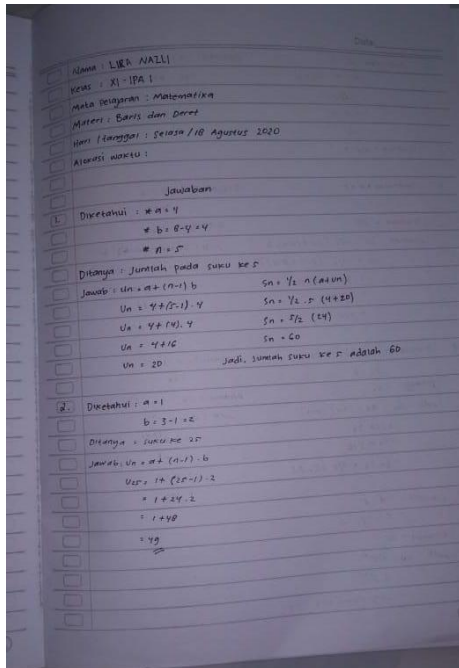 Date
Nama : LIRA NAZLI
Kelas : XI - IPA 1
Mata pelajaran : Matematika
Materi : Baris dan Deret
Hari / tanggal : Selasa / 18 Agustus 2020
Alokasi waktu :
Jawaban
1. Diketahui : * a = 4
* b = 8-4 = 4
* n = 5
Ditanya : Jumlah pada suku ke 5
Jawab : Un = a + (n-1) b
Un = 4 + (5-1) . 4
Un = 4 + (4) . 4
Un = 4 + 16
Un = 20
Sn = 1/2 n (a+un)
Sn = 1/2 . 5 (4+20)
Sn = 5/2 (24)
Sn = 60
Jadi, jumlah suku ke 5 adalah 60
2. Diketahui : a = 1
b = 3-1 = 2
Ditanya = suku ke 25
Jawab : Un = a + (n-1) . b
U25 = 1 + (25-1) . 2
= 1 + 24 . 2
= 1 + 48
= 49